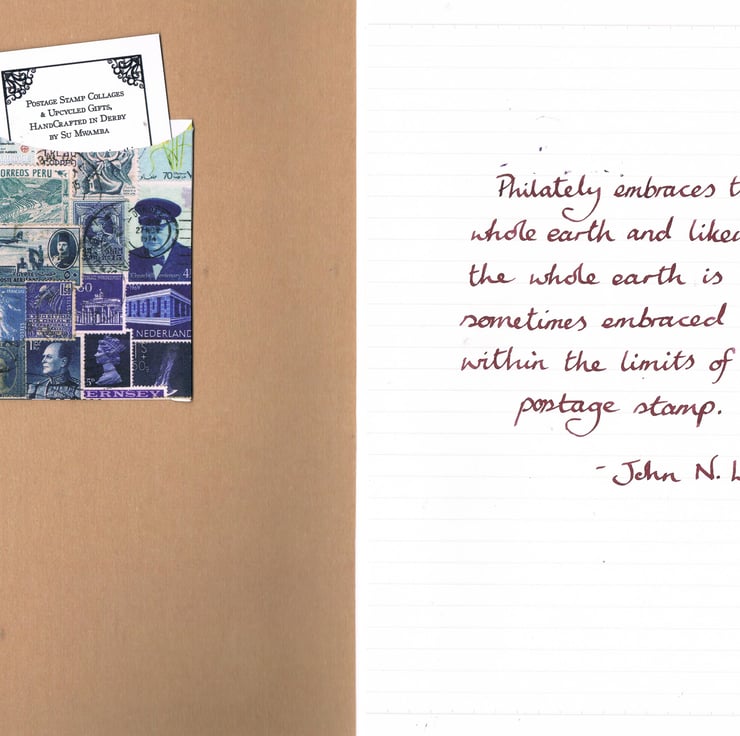 Postage Stamp Collages
& Upcycled Gifts,
HandCrafted in Derby
by Su Mwamba
70
ORREOS PERU
NEDERLAND
ERNSEY
Philately embraces t
whole earth and likew
the whole earth is
sometimes embraced
within the limits of
postage stamp.
- John N. L